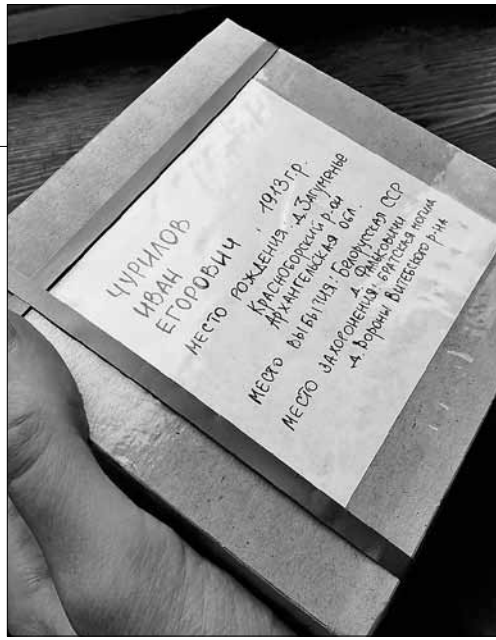 ЧУРИЛОВ
ИВАН
ЕГОРОВИЧ, 1913 г.р.
МЕСТО РОЖДЕНИЯ: Д. ЗАГУМЕНЬЕ
КРАСНОБОРСКИЙ Р-ОН
АРХАНГЕЛЬСКАЯ ОБЛ.
МЕСТО ВЫБЫТИЯ: БЕЛОРУССКАЯ ССР
Д. ФАЛЬКОВИЧИ
МЕСТО ЗАХОРОНЕНИЯ: БРАТСКАЯ МОГИЛА
Д. ВОРОНЫ ВИТЕБСКОГО Р-НА